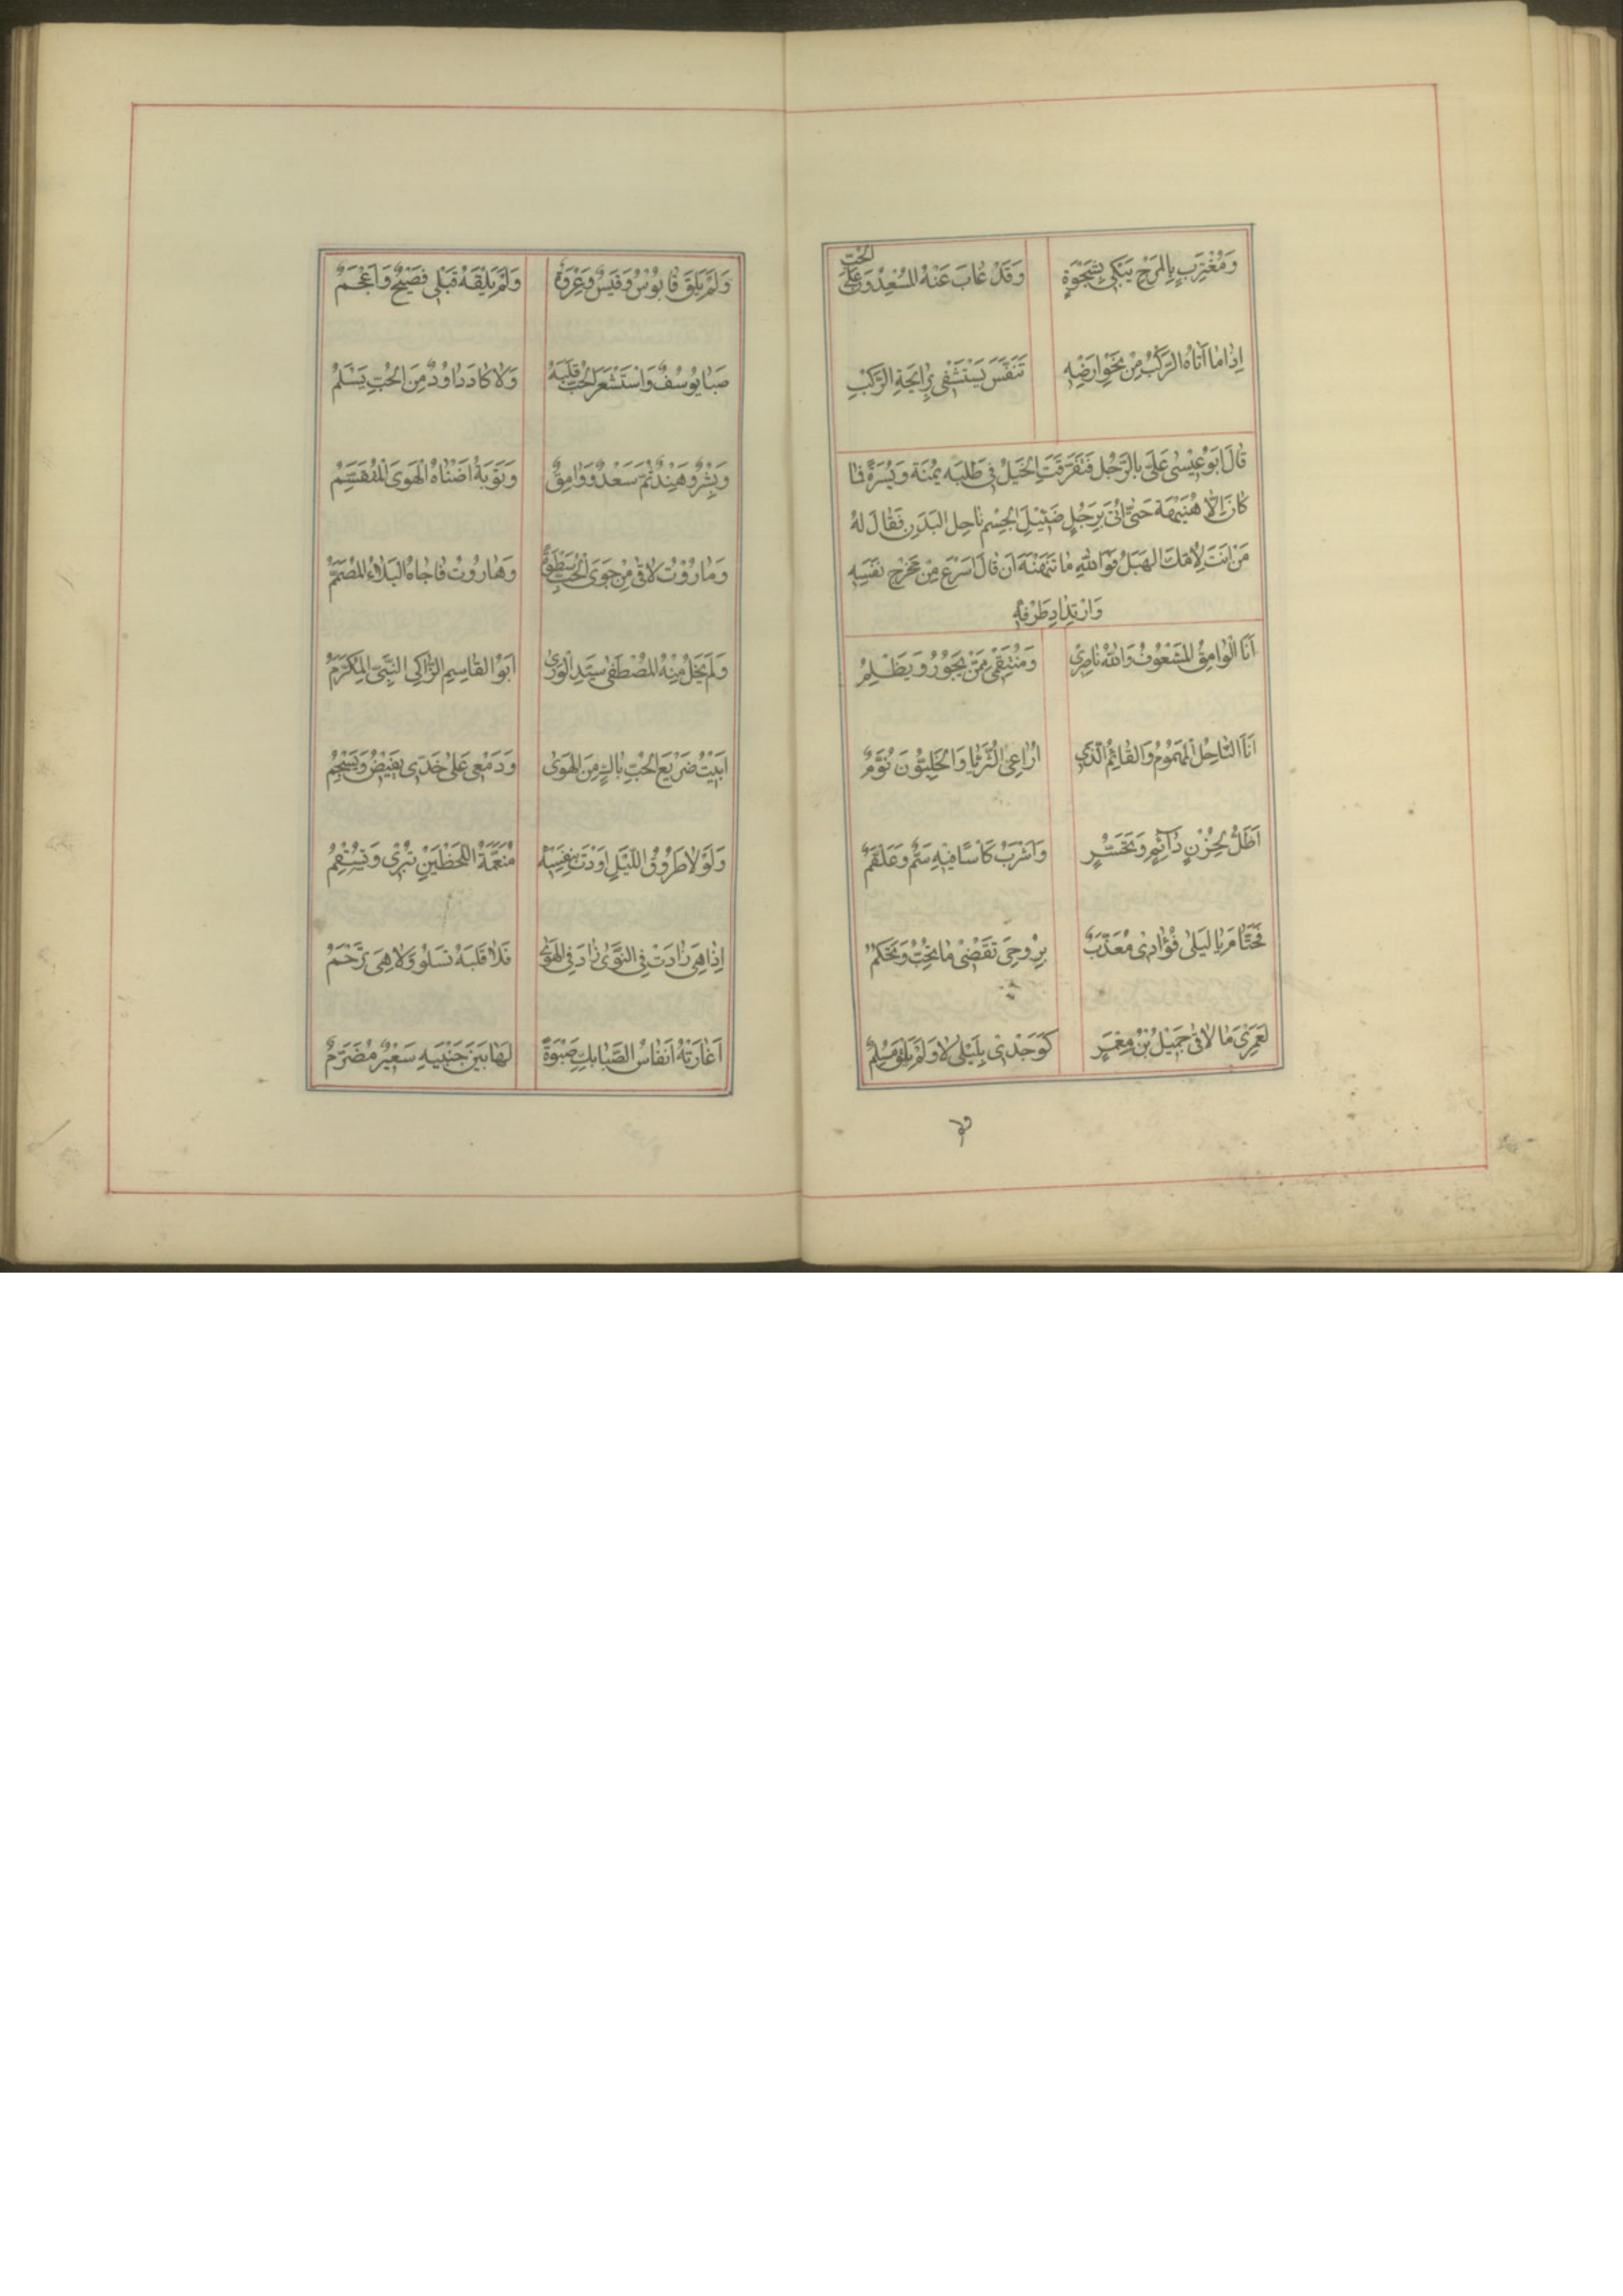 وَمُغْتَرِبٍ بِالْمَرْجِ يَبْكِي بِشَجْوَةٍ وَقَدْ غَابَ عَنْهُ الْمُسْعِدُونَ عَلَى الْحُبِّ
اِذَا مَا اَتَاهُ الرَّكْبُ مِنْ نَحْوِ اَرْضِهِ تَنَفَّسَ يَسْتَشْفِي بِرَايِحَةِ الرَّكْبِ
قَالَ اَبُو عِيْسٰى عَلَيَّ بِالرَّجُلِ فَتَفَرَّقَتِ الْخَيْلُ فِي طَلَبِهِ يُمْنَةً وَيُسْرَةً فَمَا
كَانَ اِلَّا هُنَيْهَةً حَتّٰى اَتٰى بِرَجُلٍ ضَئِيْلِ الْجِسْمِ نَاحِلِ الْبَدَنِ فَقَالَ لَهُ
مَنْ اَنْتَ لِاُمِّكَ الْهَبَلُ فَوَاللّٰهِ مَا نَهْنَهَ اَنْ قَالَ اَسْرَعَ مِنْ مَخْرَجِ نَفَسِهِ
وَارْتِدَادِ طَرْفِهِ
اَنَا الْوَامِقُ الْمَشْعُوْفُ وَاللّٰهُ نَاصِرِيْ وَمُنْتَقِمِيْ مِمَّنْ يَجُوْرُ وَيَظْلِمُ
اَنَا النَّاحِلُ الْمَهْمُوْمُ وَالْقَائِمُ الَّذِيْ اُرَاعِي الثُّرَيَّا وَالْخَلِيُّوْنَ نُوَّمٌ
اَظَلُّ بِحُزْنٍ دَآئِمٍ وَتَحَسُّرٍ وَاَشْرَبُ كَاْسًا فِيْهِ سَمٌّ وَعَلْقَمٌ
فَحَتَّامَ يَا لَيْلٰى فُؤَادِيْ مُعَذَّبٌ بِرُوْحِيَ تَقْضِيْ مَا تُحِبُّ وَتَحْكُمُ
لَعَمْرِيْ مَا لَاقٰى جَمِيْلُ بْنُ مَعْمَرٍ كَوَجْدِيْ بِلَيْلٰى لَا وَلَمْ يَلْقَ مُسْلِمٌ
وَلَمْ يَلْقَ قَابُوْسٌ وَقَيْسٌ وَعُرْوَةٌ وَلَمْ يَلْقَهُ قَبْلِي فَصِيْحٌ وَاَعْجَمُ
صَبَا يُوْسُفٌ وَاسْتَشْعَرَ الْحُبَّ قَلْبُهُ وَلَا كَادَ دَاوُدٌ مِنَ الْحُبِّ يَسْلَمُ
وَبِشْرٌ وَهِنْدٌ ثُمَّ سَعْدٌ وَوَامِقٌ وَتَوْبَةُ اَضْنَاهُ الْهَوَى الْمُتَقَسِّمُ
وَمَارُوْتُ لَاقٰى مِنْ جَوَى الْحُبِّ وَهَارُوْتُ فَاجَاهُ الْبَلَاءُ الْمُصَمَّمُ
وَلَمْ يَخْلُ مِنْهُ الْمُصْطَفٰى سَيِّدُ الْوَرٰى اَبُو الْقَاسِمِ الزَّاكِي النَّبِيُّ الْمُكَرَّمُ
اَبِيْتُ ضَرِيْعَ الْحُبِّ بَاكٍ مِنَ الْهَوٰى وَدَمْعِي عَلٰى خَدِّيْ يَفِيْضُ وَيَسْجُمُ
وَلَوْلَا طُرُوْقُ اللَّيْلِ اَوْدَتْ بِنَفْسِهِ مُنَعَّمَةُ اللَّحْظَيْنِ تُبْرِيْ وَتُسْقِمُ
اِذَا هِيَ زَادَتْ فِي النَّوٰى زَادَ فِي الْهَوٰى فَلَا قَلْبَهُ تَسْلُوْ وَلَا هِيَ تَرْحَمُ
اَغَارَتْهُ اَنْفَاسُ الصَّبَا بِكِ صَبْوَةً لَهَا بَيْنَ جَنْبَيْهِ سَعِيْرٌ مُضَرَّمُ